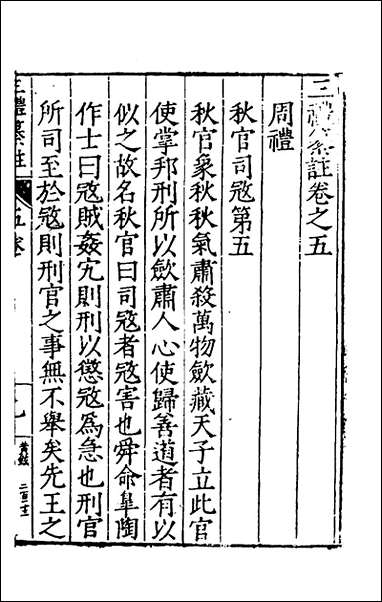 三禮纂註卷之五
周禮
秋官司寇第五
秋官象秋秋氣肅殺萬物歛藏天子立此官
使掌邦刑所以歛肅人心使歸善道者有以
似之故名秋官曰司寇者寇害也舜命皐陶
作士曰寇賊姦宄則刑以懲寇爲急也刑官
所司至於寇則刑官之事無不舉矣先王之
三禮纂註
五卷